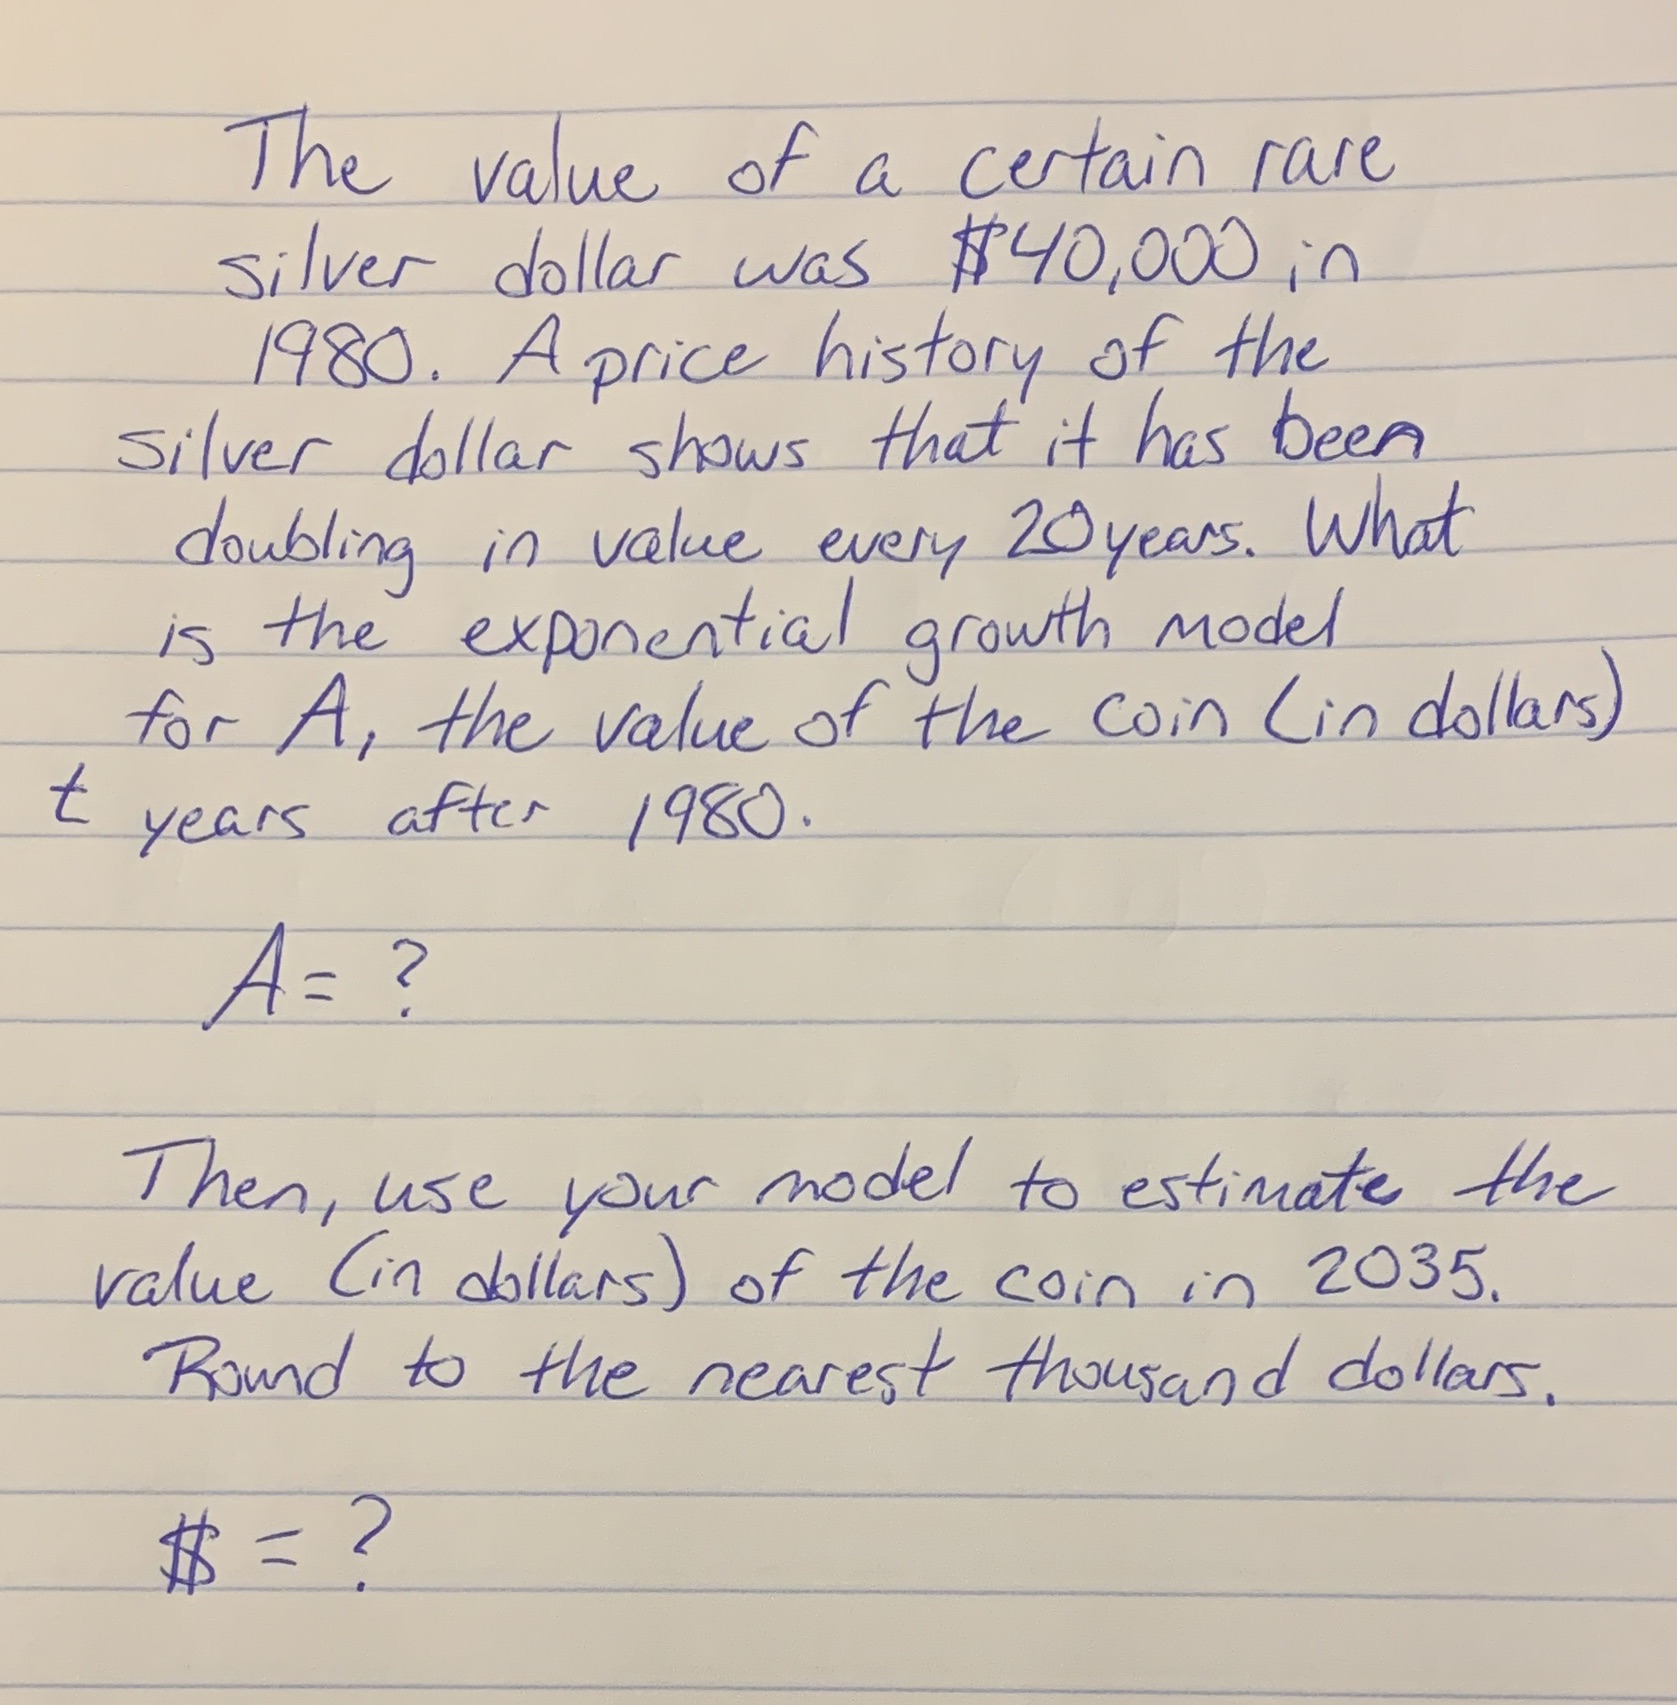 The value of a certain rare
silver dollar was $40,000 in
1980. A price history of the
silver dollar shows that it has been
doubling in value every 20 years. What
is the exponential growth model
for A, the value of the coin (in dollars)
t years after 1980.
A = ?
Then, use your model to estimate the
value (in dollars) of the coin in 2035.
Round to the nearest thousand dollars.
$ = ?